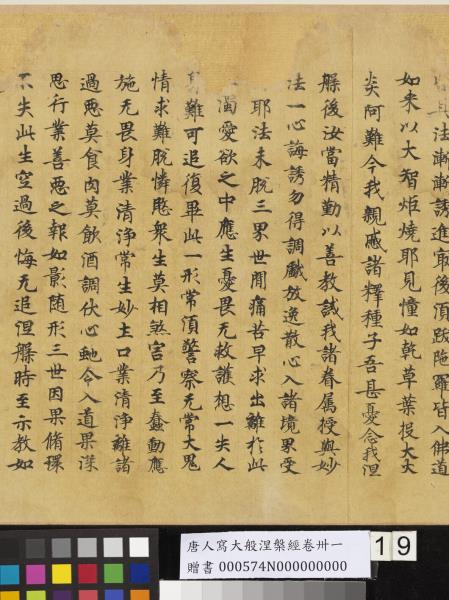 其法漸漸誘進最後須跋陁羅皆入佛道
如来以大智炬燒耶見憧如乾草葉投大火
炎阿難今我親慼諸釋種子吾甚憂念我涅
槃後汝當精勤以善教誡我諸眷屬授與妙
法一心誨誘勿得調戲放逸散心入諸境界受
耶法未脫三界世間痛苦早求出離於此
濁愛欲之中應生憂畏无救護想一失人
身難可追復畢此一形常須警察无常大鬼
情求難脫憐愍衆生莫相煞害乃至蠢動應
施无畏身業清淨常生妙土口業清淨離諸
過惡莫食肉莫飲酒調伏心虵令入道果深
思行業善惡之報如影随形三世因果脩環
不失此生空過後悔无追涅槃時至示教如
唐人寫大般涅槃經卷卅一
贈書 000574N000000000
19